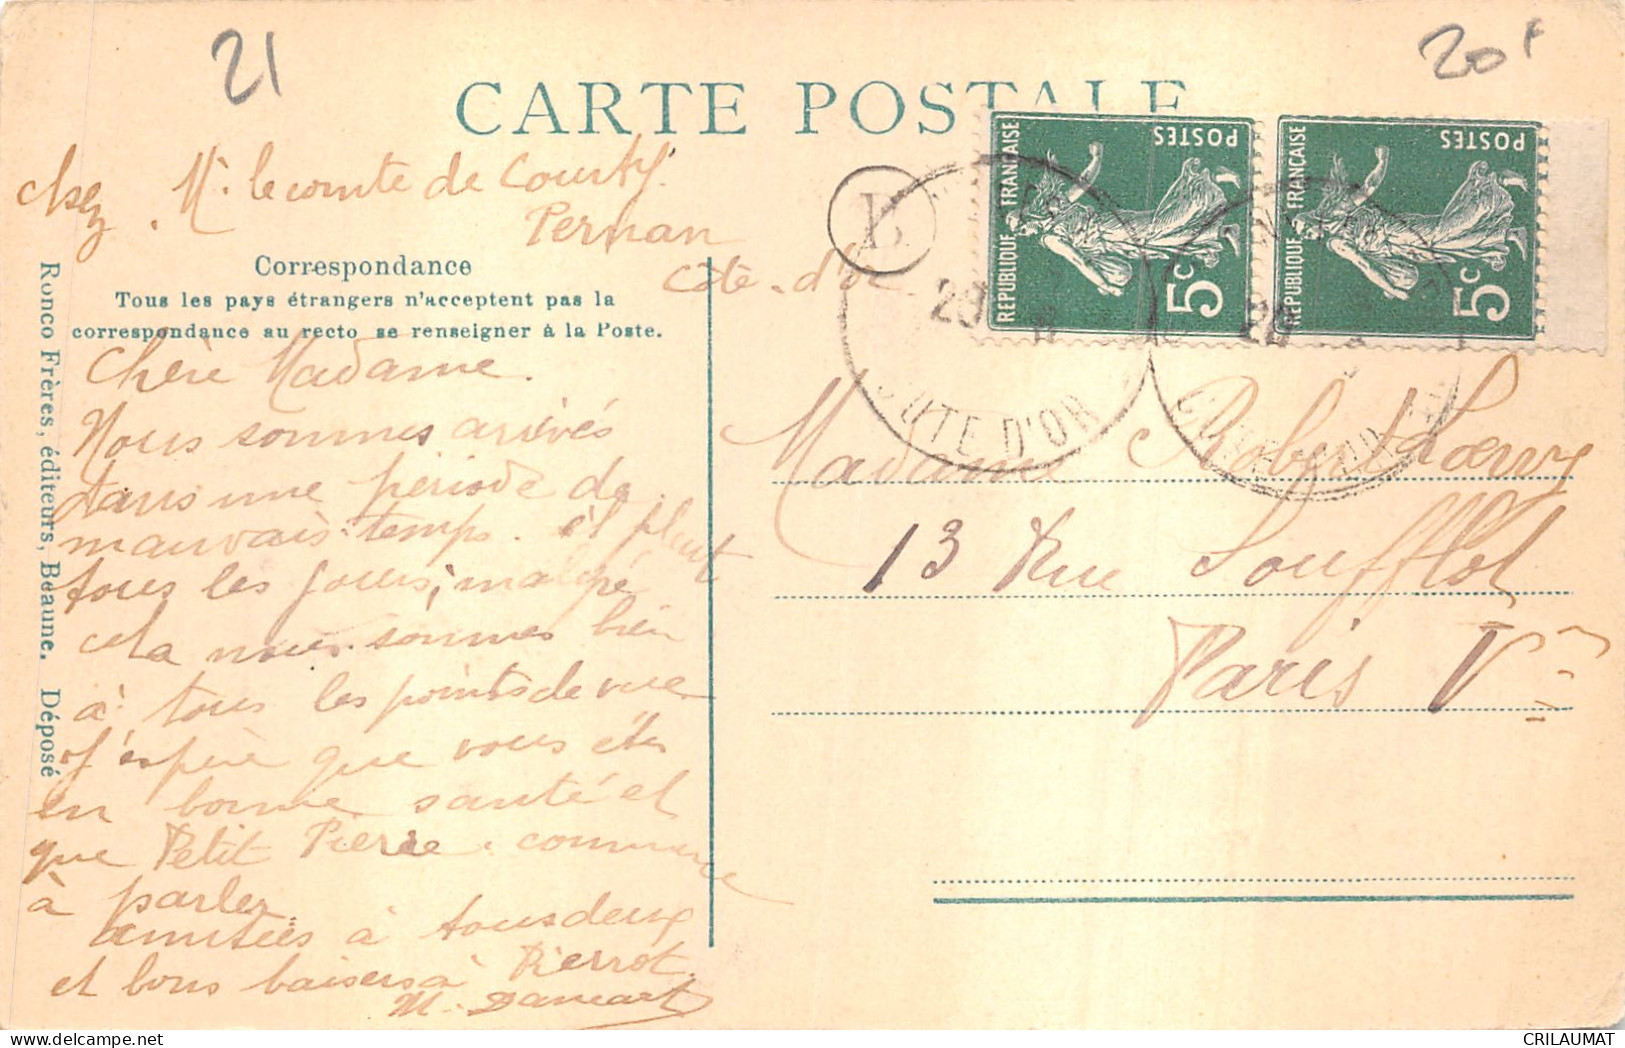 21
20f
CARTE POSTALE
chez M. le comte de Courty
Pernan
Côte-d'or
B
Correspondance
Tous les pays étrangers n'acceptent pas la
correspondance au recto se renseigner à la Poste.
Ronco Frères, éditeurs, Beaune. Déposé
Chère Madame.
Nous sommes arivés
dans une période de
mauvais temps. il pleut
tous les jours, malgré
cela nous sommes bien
à tous les points de vue
J'espère que vous êtes
en bonne santé et
que Petit Pierre commence
à parler.
amitiés à tous deux
et bons baisers à Pierrot.
M. Dancart
REPUBLIQUE FRANÇAISE
POSTES
5c
REPUBLIQUE FRANÇAISE
POSTES
5c
COTE D'OR
Madame Robert Loewy
13 Rue Soufflot
Paris V
CRILAUMAT